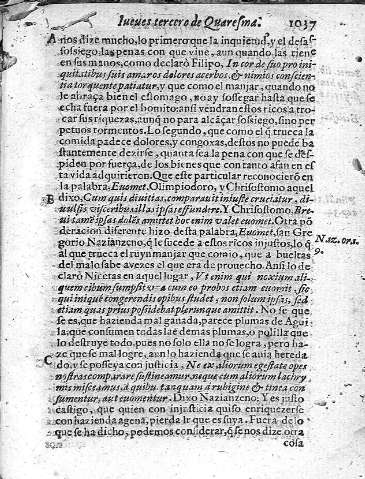 Iueues tercero de Quaresma. 1037
A nos dize mucho, lo primero que la inquietud, y el desas-
sossiego, las penas con que viue, aun quando las tiene
en sus manos, como declarò Filipo, In cor de suo pro ini-
quitatibus suis amaros dolores acerbos & nimios conscien-
tia torquente patiatur, y que como el manjar, quando no
le abraça bien el estomago, no ay sossegar hasta que se
echa fuera por el bomito: ansi vendran estos ricos a tro-
car sus riquezas, aunq̃ no para alcãçar sossiego, sino per
petuos tormentos. Lo segundo, que como el q̃ trueca la
comida padece dolores, y congoxas, destos no puede ba-
stantemente dezirse, quanta sea la pena con que se des-
piden por fuerça, de los bienes que con tanto afan en es
ta vida adquirieron. Que este particular reconociero en
la palabra, Euomet, Olimpiodoro, y Chrisostomo aquel
B dixo, Cum quis diuitias, comparauit iniuste cruciatur, di-
uulsis visceribus illas ipsas effundere. Y Chrisostomo, Bre
ui tamẽ ipsas dolẽs amittet hoc enim valet euomet. Otra põ
deracion diferente hizo desta palabra, Euomet, san Gre
gorio Nazianzeno, q̃ le sucede a estos ricos injustos, lo q̃
Naz. ora.
al que trueca el ruyn manjar que comio, que a bueltas
9.
del malo sabe a vezes el que era de prouecho. Ansi lo de
clarò Nicetas en aquel lugar, Vt enim qui noxium ali-
quem cibum sumpsit vna cum eo probos etiam euomit, sic
qui iniquè congerendis opibus studet, non solum ipsas, sed
etiam quas prius possidebat plerumque amittit. No se que
se es, que hazienda mal ganada, parece plumas de Agui
la, que consumen todas las demas plumas, o polilla que
lo destruye todo, pues no solo ella no se logra, pero ha-
ze que se mal logre, aun lo hazienda que se auia hereda
C do, y se posseya con justicia. Ne ex aliorum egestate opes
nostras comparare sustineamur neque cum aliorum lachry
mis misceamus, a quibus tanquam à rubigine & tinea con
sumentur, aut euomentur. Dixo Nazianzeno: Y es justo
castigo, que quien con injusticia quiso enriquezerse
con hazienda agena, pierda la que es suya. Fuera de lo
que se ha dicho, podemos considerar, q̃ se nos dize otra
cosa